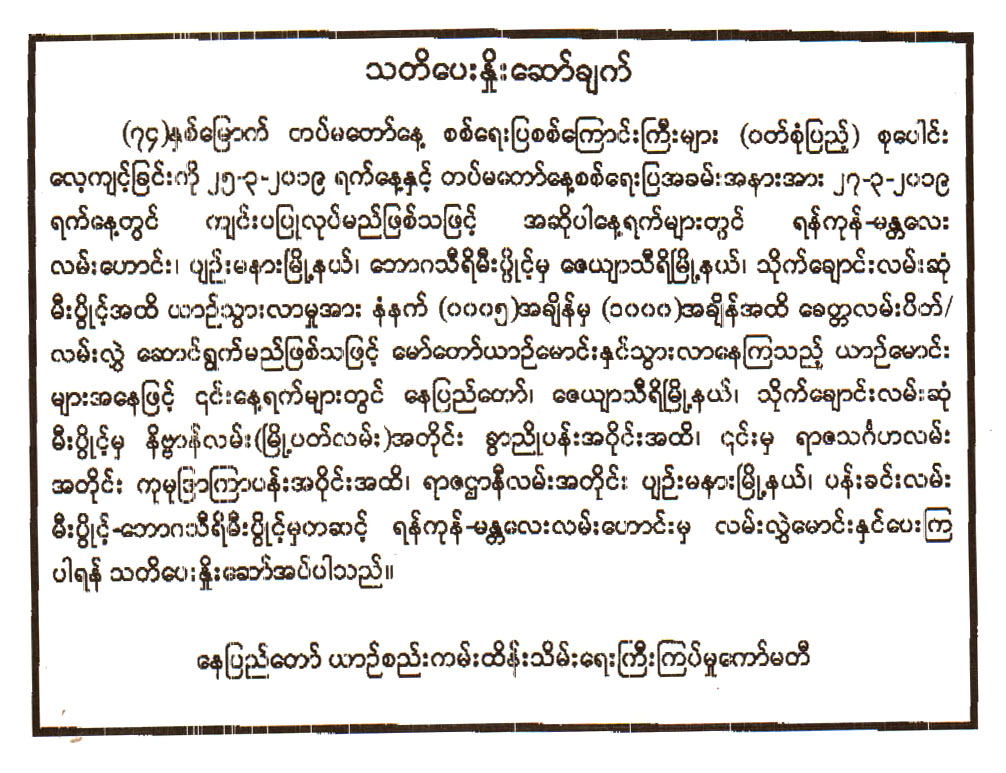 သတိပေးနှိုးဆော်ချက်
(၇၄)နှစ်မြောက် တပ်မတော်နေ့ စစ်ရေးပြစစ်ကြောင်းကြီးများ (ဝတ်စုံပြည့်) စုပေါင်း
လေ့ကျင့်ခြင်းကို ၂၅-၃-၂၀၁၉ ရက်နေ့နှင့် တပ်မတော်နေ့စစ်ရေးပြအခမ်းအနားအား ၂၇-၃-၂၀၁၉
ရက်နေ့တွင် ကျင်းပပြုလုပ်မည်ဖြစ်သဖြင့် အဆိုပါနေ့ရက်များတွင် ရန်ကုန်-မန္တလေး
လမ်းဟောင်း၊ ပျဉ်းမနားမြို့နယ်၊ ဘောဂသီရိမီးပွိုင့်မှ ဇေယျာသီရိမြို့နယ်၊ သိုက်ချောင်းလမ်းဆုံ
မီးပွိုင့်အထိ ယာဉ်သွားလာမှုအား နံနက် (၀၀၀၅)အချိန်မှ (၁၀၀၀)အချိန်အထိ ခေတ္တလမ်းပိတ်/
လမ်းလွှဲ ဆောင်ရွက်မည်ဖြစ်သဖြင့် မော်တော်ယာဉ်မောင်းနှင်သွားလာနေကြသည့် ယာဉ်မောင်း
များအနေဖြင့် ၎င်းနေ့ရက်များတွင် နေပြည်တော်၊ ဇေယျာသီရိမြို့နယ်၊ သိုက်ချောင်းလမ်းဆုံ
မီးပွိုင့်မှ နိဗ္ဗာန်လမ်း(မြို့ပတ်လမ်း)အတိုင်း ခွာညိုပန်းအဝိုင်းအထိ၊ ၎င်းမှ ရာဇသင်္ဂဟလမ်း
အတိုင်း ကုမုဒြာကြာပန်းအဝိုင်းအထိ၊ ရာဇဌာနီလမ်းအတိုင်း ပျဉ်းမနားမြို့နယ်၊ ပန်းခင်းလမ်း
မီးပွိုင့်-ဘောဂသီရိမီးပွိုင့်မှတဆင့် ရန်ကုန်-မန္တလေးလမ်းဟောင်းမှ လမ်းလွှဲမောင်းနှင်ပေးကြ
ပါရန် သတိပေးနှိုးဆော်အပ်ပါသည်။
နေပြည်တော် ယာဉ်စည်းကမ်းထိန်းသိမ်းရေးကြီးကြပ်မှုကော်မတီ